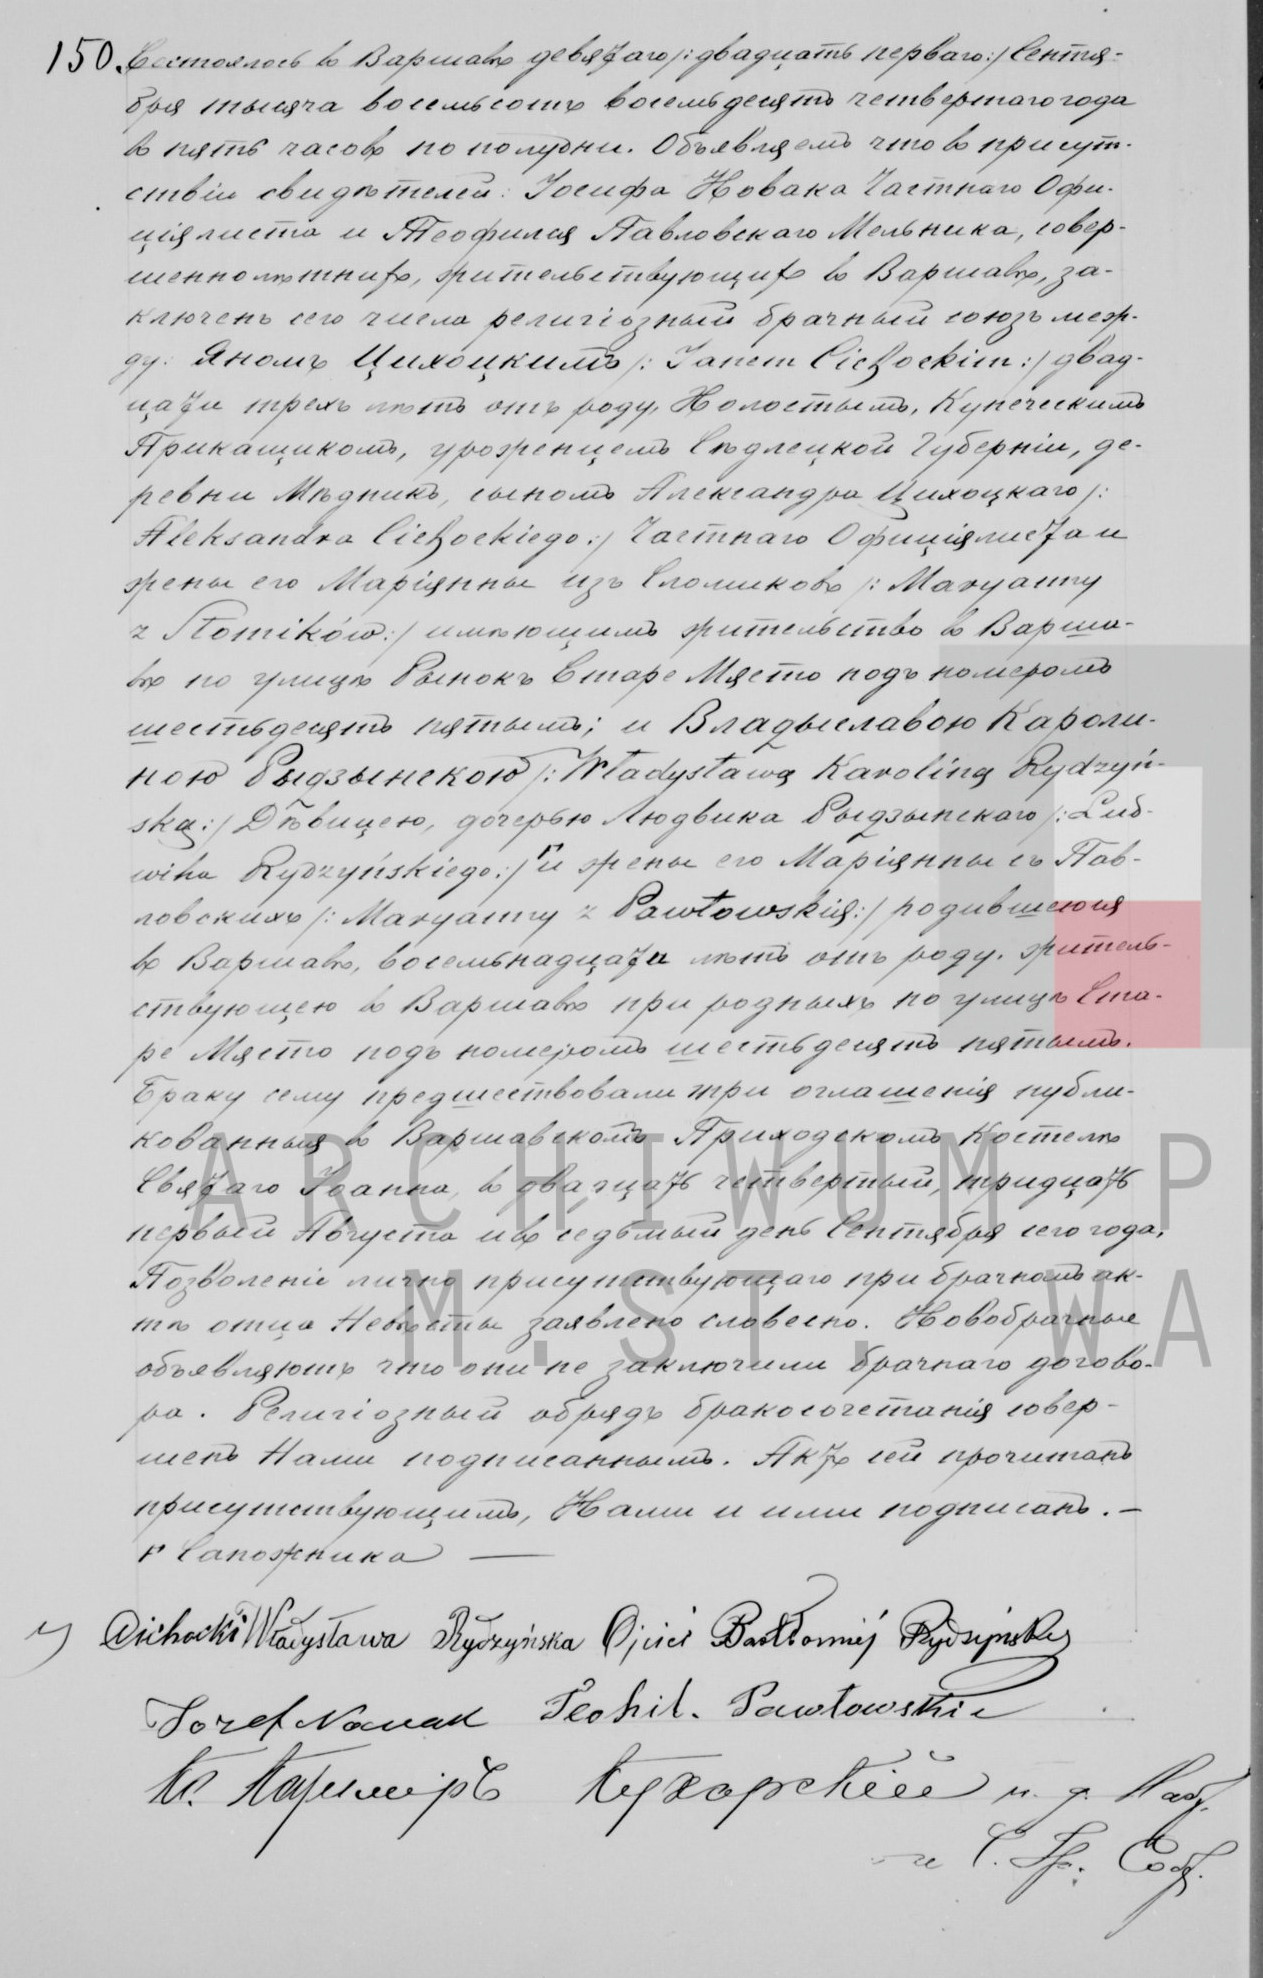 150. Состоялось въ Варшавѣ девятаго /: двадцать перваго :/ Сентя-
бря тысяча восемьсотъ восемьдесятъ четвертаго года
въ пять часовъ по полудни. Объявляемъ что въ присут-
ствіи свидѣтелей: Іосифа Новака Частнаго Офи-
ціялиста и Теофиля Павловскаго Мельника, совер-
шеннолѣтнихъ, жительствующихъ въ Варшавѣ, за-
ключенъ сего числа религіозный брачный союзъ меж-
ду: Яномъ Цихоцкимъ /: Janem Cichockim :/ двад-
цати трехъ лѣтъ отъ роду, Холостымъ, Купеческимъ
Прикащикомъ, урожренцемъ Сѣдлецкой Губерніи, де-
ревни Мѣдникъ, сыномъ Александра Цихоцкаго /:
Aleksandra Cichockiego :/ Частнаго Официялиста и
жены его Маріянны изъ Сломиковъ /: Maryanny
z Słomików :/ имѣющимъ жительство въ Варша-
вѣ по улицѣ Рынокъ Старе Място подъ номеромъ
шестьдесятъ пятымъ; и Владыславою Кароли-
ною Рыдзынскою /: Władysławą Karoliną Rydzyń-
ską :/ Дѣвицею, дочерью Людвика Рыдзынскаго /: Lud-
wika Rydzyńskiego :/ г и жены его Маріянны съ Пав-
ловскихъ /: Maryanny z Pawłowskich :/ родившеюся
въ Варшавѣ, восемьнадцати лѣтъ отъ роду, житель-
ствующею въ Варшавѣ при родныхъ по улицѣ Ста-
ре Място подъ номеромъ шестьдесятъ пятымъ.
Браку сему предшествовали три оглашенія публи-
кованныя въ Варшавскомъ Приходскомъ Костелѣ
Святаго Іоанна, въ двадцать четвертый, тридцать
первый Августа и въ седьмый день Сентября сего года,
Позволеніе лично присутствующаго при брачномъ ак-
тѣ отца Невѣсты заявлено словесно. Новобрачные
объявляютъ что они не заключили брачнаго догово-
ра. Религіозный обрядъ бракосочетанія совер-
шенъ Нами подписаннымъ. Актъ сей прочитанъ
присутствующимъ, Нами и ими подписанъ. –
г Сапожника —
Cichocki Władysława Rydzyńska Ojciec Bartłomiej Rydzyński
Jozef Nowak Teohil. Pawłowski
Кс. Казимиръ и. д. Наст.
и С. Гр. Сост.
ARCHIWUM P
M. ST. WA